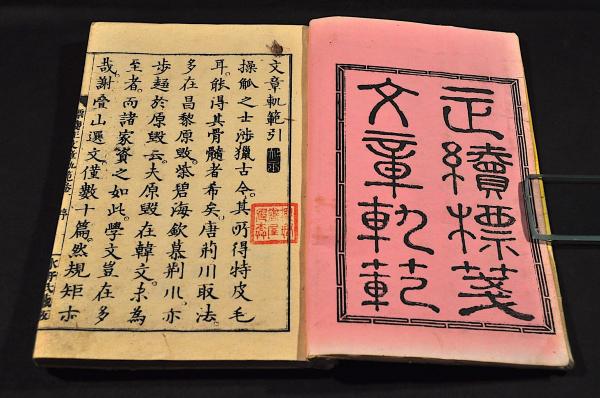 正續標箋
文章軌範
文章軌範引
操觚之士。涉獵古今。其所得特皮毛
耳。能得其骨髓者希矣。唐荊川取法。
多在昌黎原毀。柴碧海欽慕荊川。亦
步趨於原毀云。夫原毀在韓文。未為
至者。而諸家資之如此。學文豈在多
哉。謝疊山選文。僅數十篇。然規矩亦